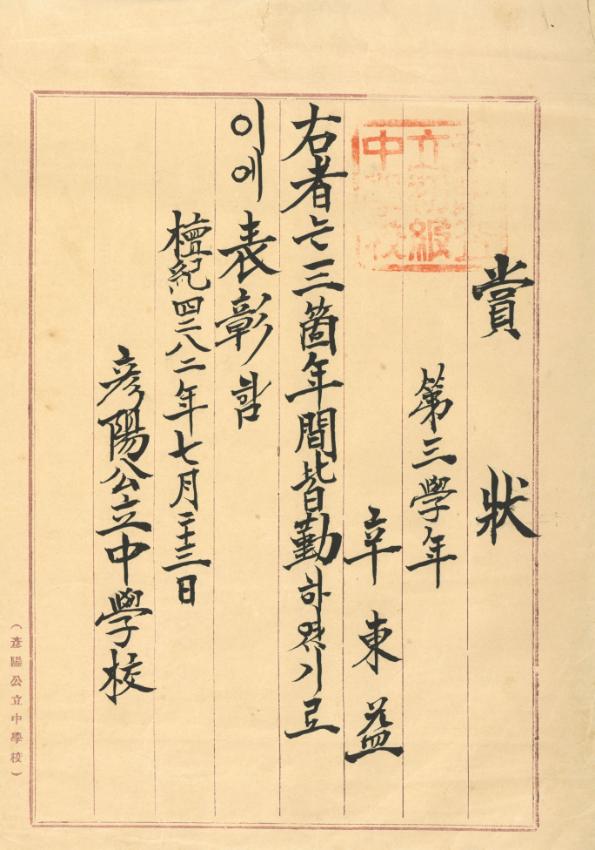 賞狀
第三學年
辛東益
右者는三箇年間皆勤하였기로
이에表彰함
檀紀四二八二年七月二十三日
彦陽公立中學校
(彦陽公立中學校)